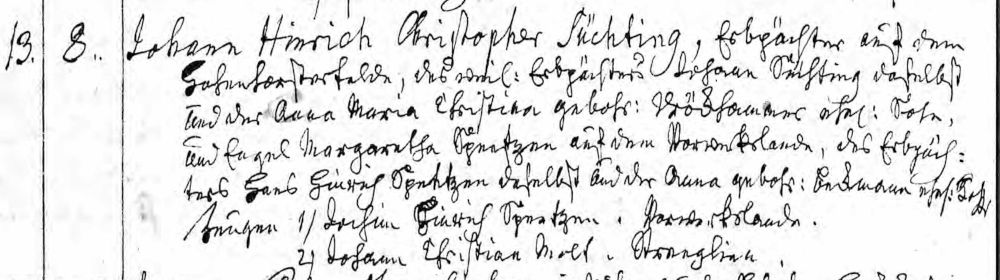 13. 8. Johann Hinrich Christopher Süchting, Erbpächter auf dem
Hohenhorsterfelde, des weil: Erbpächters Johann Süchting daselbst
und der Anna Maria Christina gebohr: ehel: Sohn,
und Engel Margaretha Speetzen auf dem Vorwerkslande, des Erbpäch-
ters Hans Hinrich Speetzen daselbst und der Anna gebohr: Beckmann ehel: Tocht.
Zeugen 1) Jochim Hinrich Speetzen. Vorwerkslande.
2) Johann Christian Molt. Strenglien.